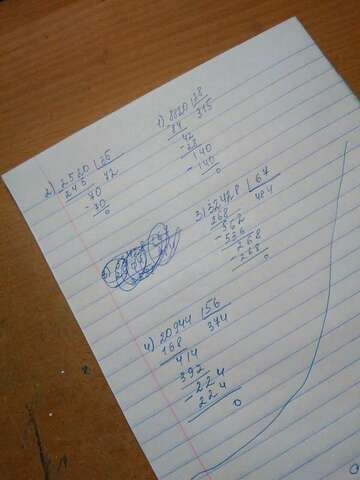 1) 8820 28
84 315
42
- 28
140
- 140
0
2) 2520 35
245 72
70
- 70
0
3) 32428 67
268 484
562
- 536
268
- 268
0
4) 20944 56
168 374
414
392
- 224
224
0